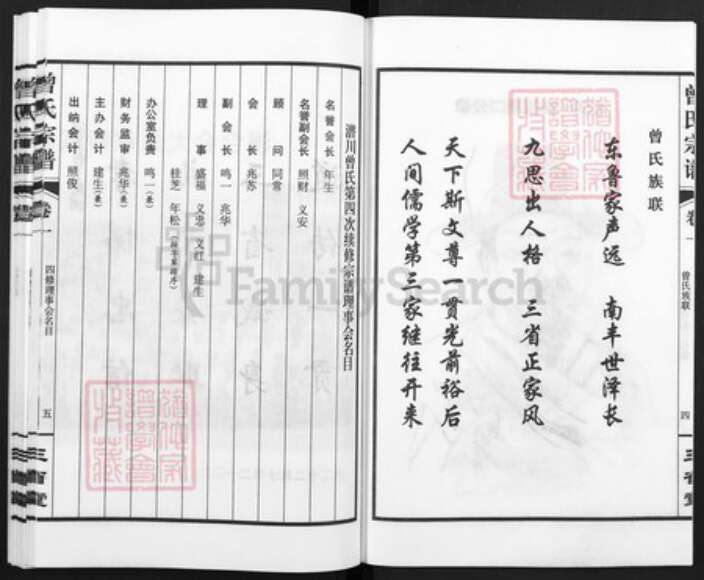 曾氏宗谱 卷一 曾氏族联 四 三省堂
曾氏族联
东鲁家声远 南丰世泽长
九思出人格 三省正家风
天下斯文尊一贯光前裕后
人间儒学第三家继往开来
川曾氏第四次续修宗谱理事会名目
名誉会长 年生
名誉副会长 照财 义安
顾问 同常
会长 兆苏
副会长 鸣一 兆华
理事 盛福 义忠 义红 建生
桂芝 年松
办公室负责 鸣一(兼)
财务监审 兆华(兼)
主办会计 建生(兼)
出纳会计 照俊
曾氏宗谱 卷一 四修理事会名目 五 三省堂
FamilySearch